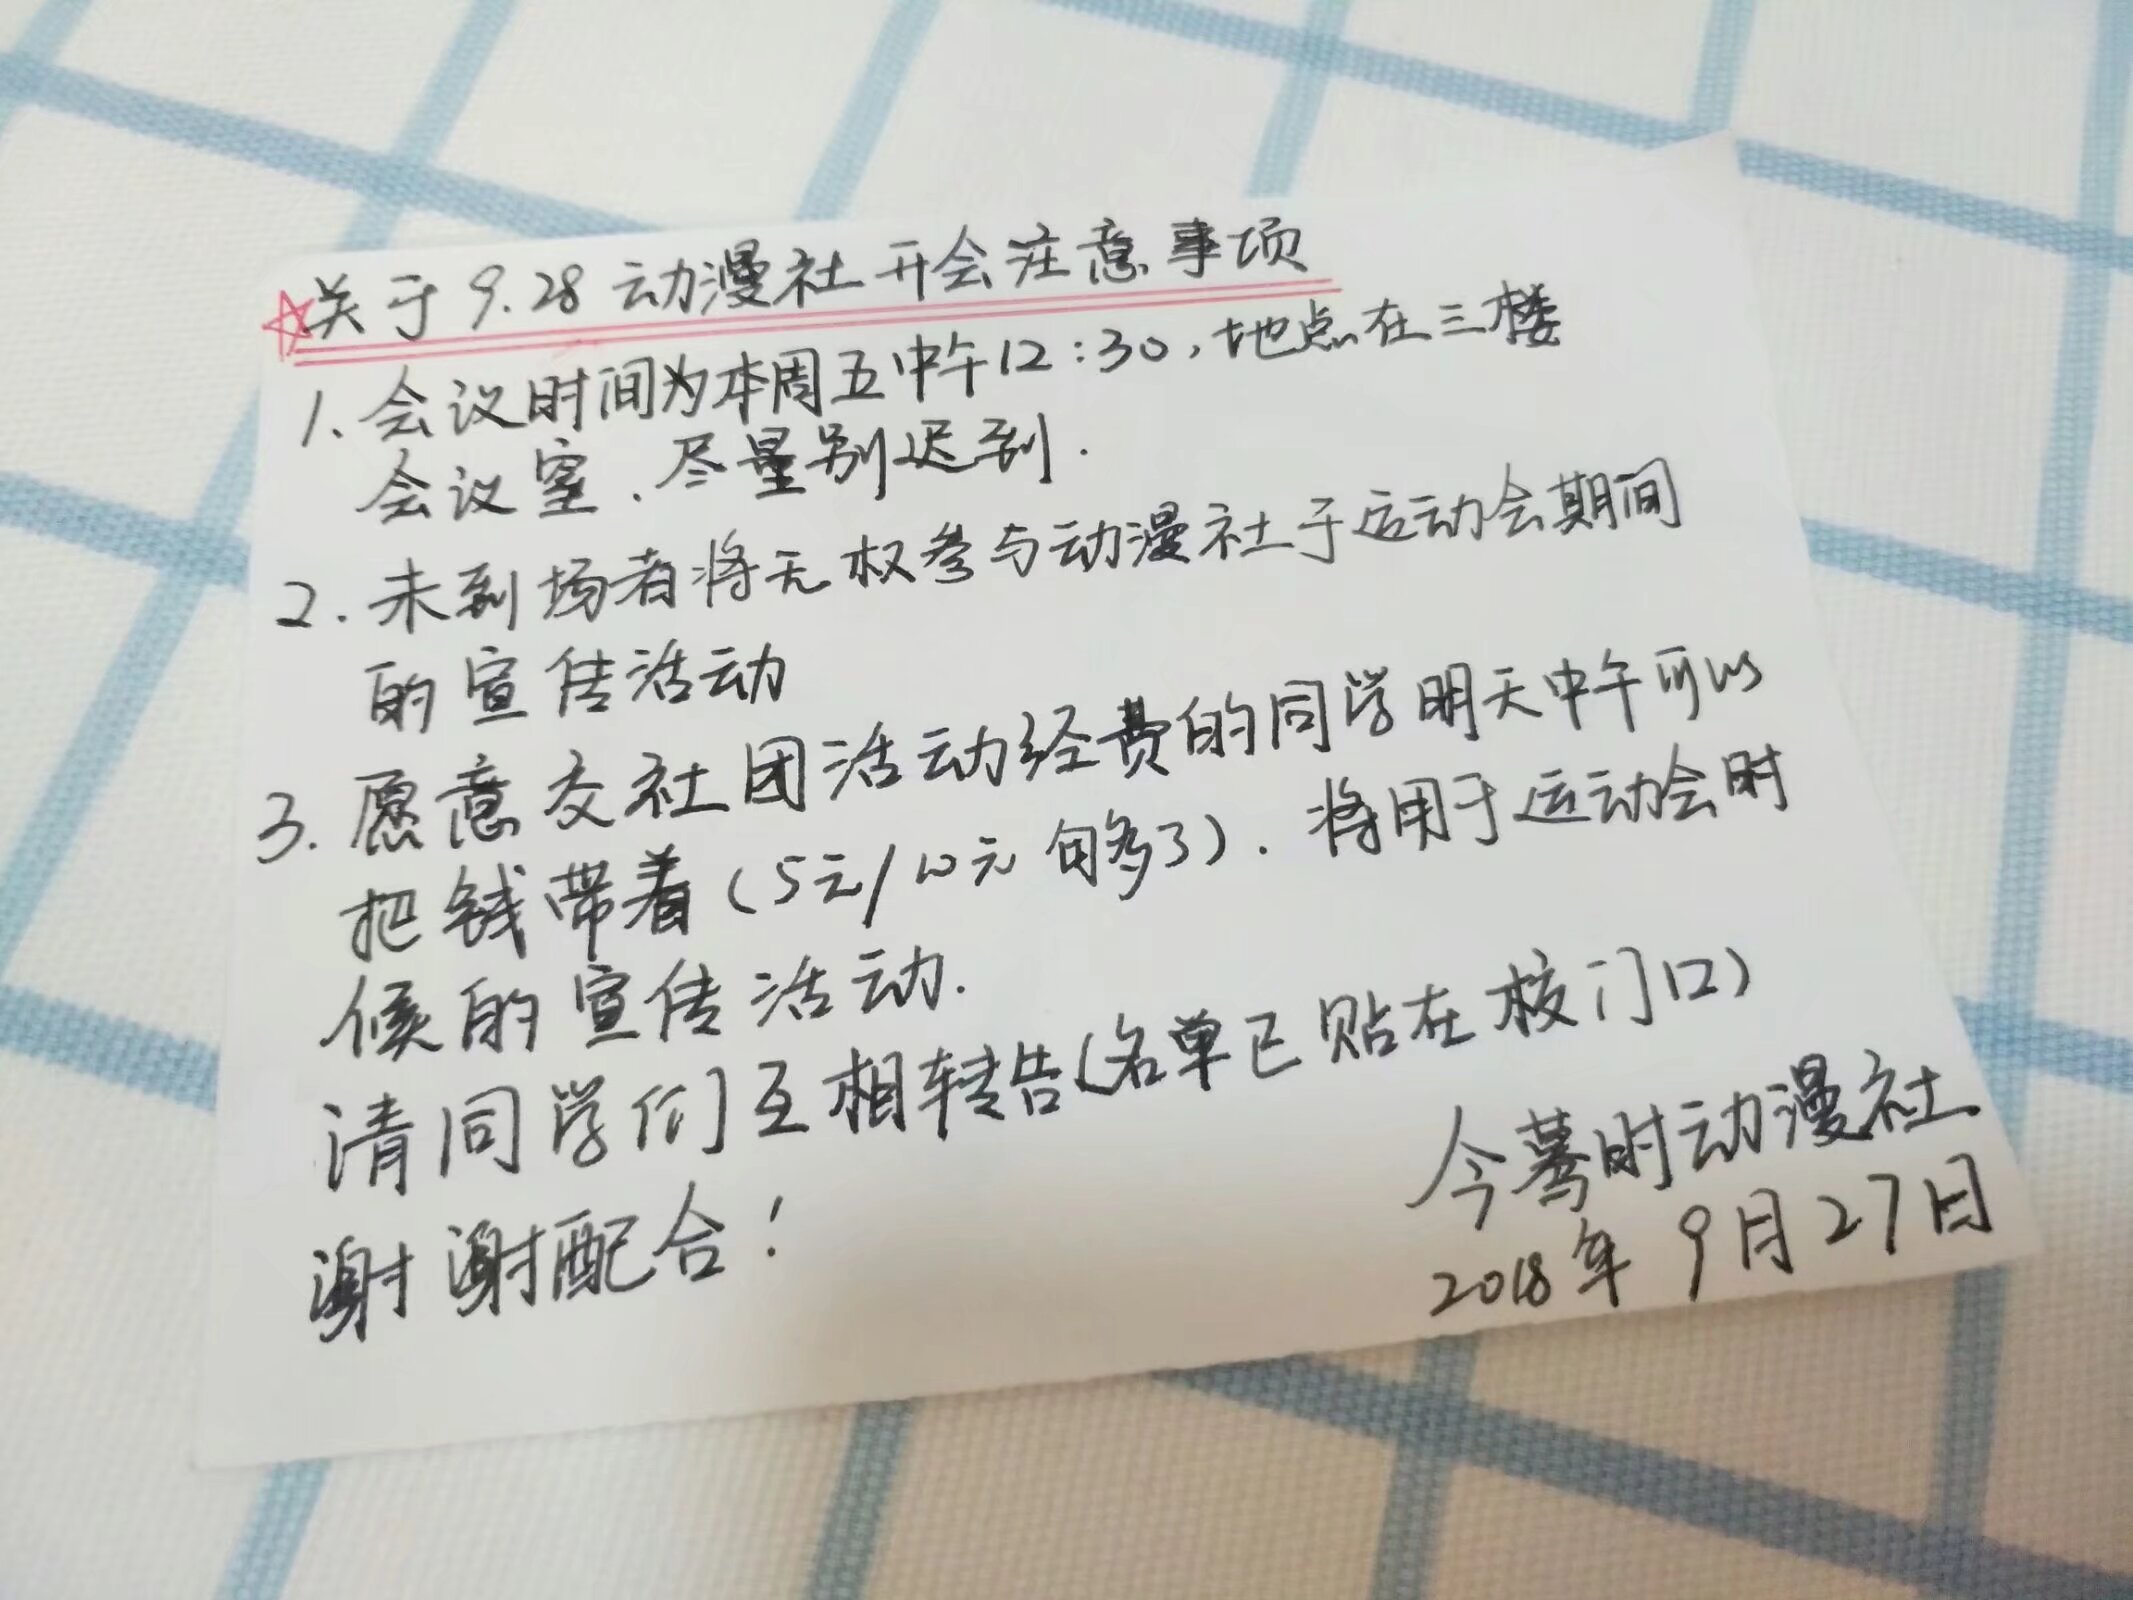 ☆关于9.28动漫社开会注意事项
1、会议时间为本周五中午12:30,地点在三楼
会议室.尽量别迟到.
2.未到场者将无权参与动漫社于运动会期间
的宣传活动
3.愿意交社团活动经费的同学明天中午可以
把钱带着(5元/10元 够了).将用于运动会时
候的宣传活动.
请同学们互相转告(名单已贴在校门口)
谢谢配合!
今蓦时动漫社
2018年9月27日